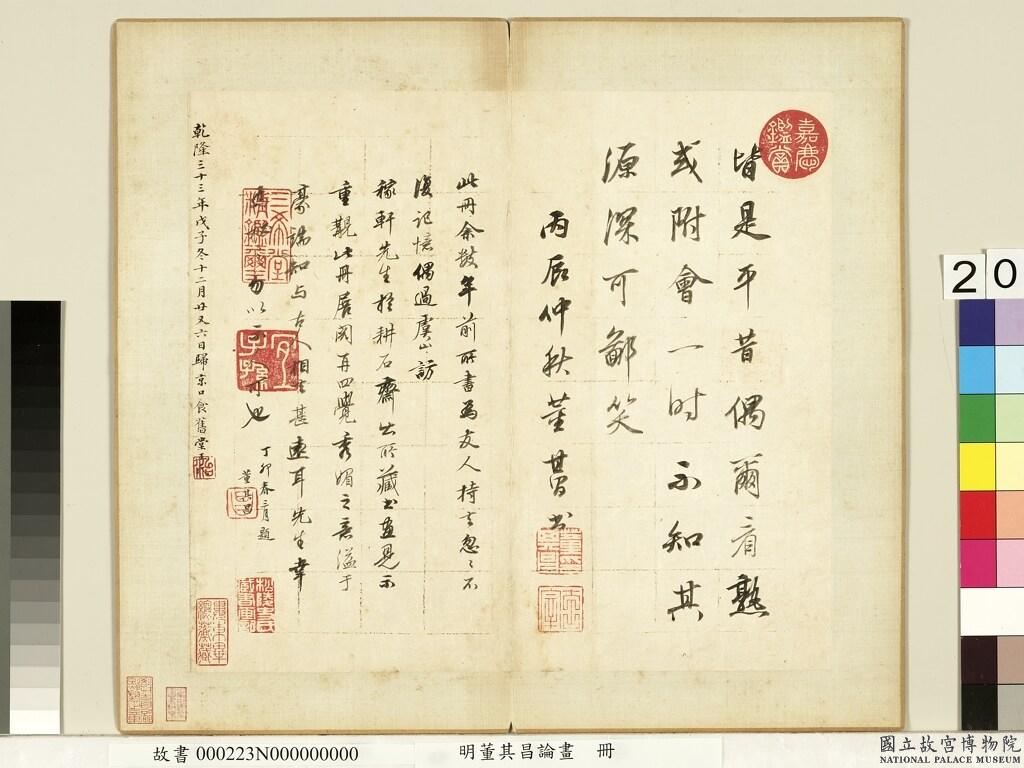 皆是平昔偶爾看熟
或附會一時不知其
源深可鄙笑
丙辰仲秋董其昌書
此冊余數年前所書為友人持去忽忽不
復記憶偶過虞山訪
稼軒先生於耕石齋出所藏書畫見示
重觀此冊展閱再四覺秀媚之意溢于
豪端知与古人相去甚遠耳先生幸
勿以示人也
丁卯春三月題
董其昌
乾隆三十三年戊子冬十二月廿又六日歸京口食舊堂
嘉慶鑑賞
三希堂精鑑璽
宜子孫
20
故書 000223N000000000
明董其昌論畫 冊
國立故宮博物院
NATIONAL PALACE MUSEUM